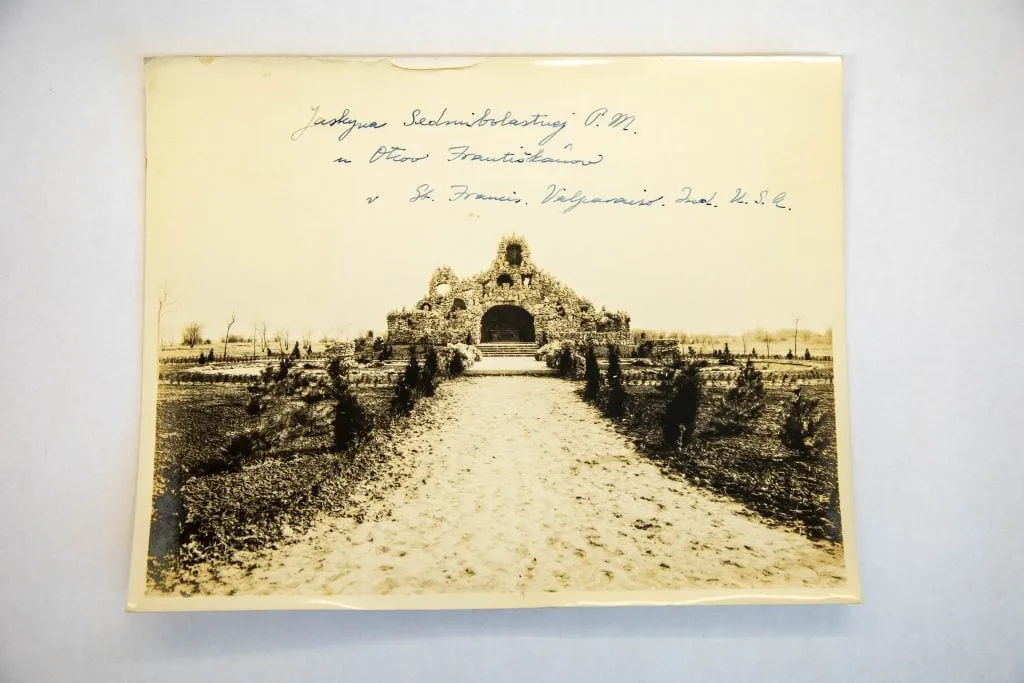 Jaskyna Sedmibolastnej P. M.
u Otcov Františkânov
v St. Francis. Valparaiso. Ind. U.S.A.